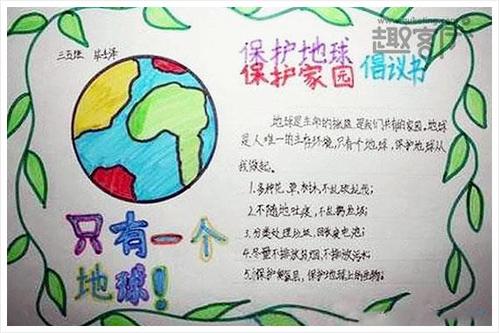 趣客厅
三五班
保护地球
保护家园
倡议书
地球是生命的摇篮,是我们共有的家园。地球
是人唯一的生存环境,只有个地球,保护地球从
我做起。
1.多种花、草、树木,不乱砍乱伐;
2.不随地吐痰,不乱扔垃圾;
3.分类处理垃圾,回收废电池;
4.尽量不排放废烟,不排放污水
5.保护野生,保护地球上的生物;
只有一个
地球!